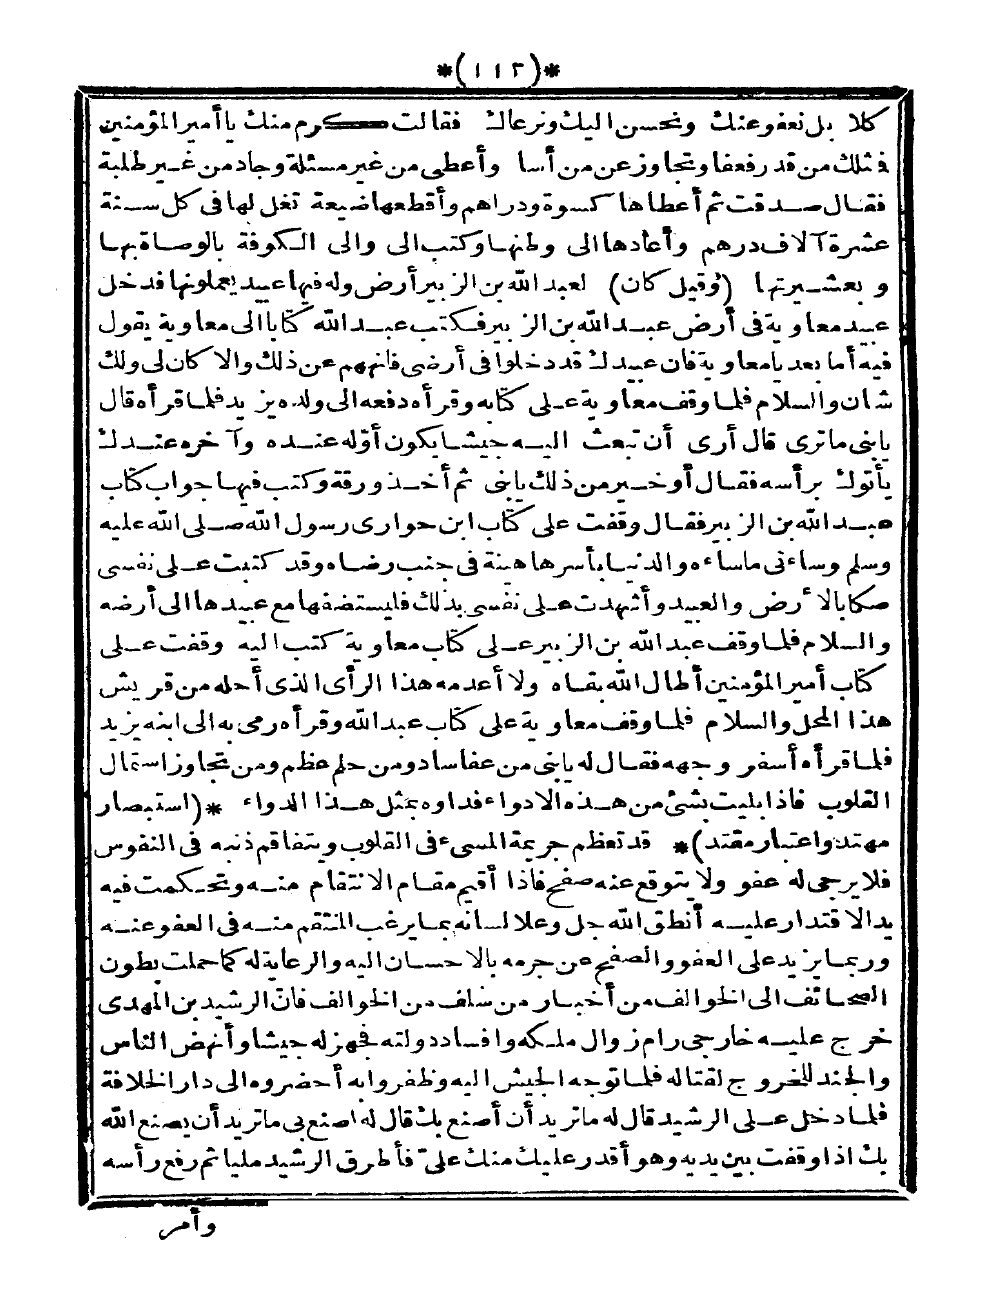 *(١١٢)*
كلا بل نعفو عنك ونحسن اليك ونرعاك فقالت كرم منك يا أمير المؤمنين
فمثلك من قدر فعفا وتجاوز عن من أسا وأعطى من غير مسئلة وجاد من غير طلبة
فقال صدقت ثم أعطاها كسوة ودراهم وأقطعها ضيعة تغل لها فى كل سنة
عشرة آلاف درهم وأعادها الى وطنها وكتب الى والى الكوفة بالوصاة بها
وبعشيرتها (وقيل كان) لعبد الله بن الزبير أرض وله فيها عبيد يعملونها فدخل
عبيد معاوية فى أرض عبد الله بن الزبير فكتب عبد الله كتابا الى معاوية يقول
فيه أما بعد يا معاوية فان عبيدك قد دخلوا فى أرضى فانههم عن ذلك والا كان لى ولك
شان والسلام فلما وقف معاوية على كتابه وقرأه دفعه الى ولده يزيد فلما قرأه قال
يا بنى ما ترى قال أرى أن تبعث اليه جيشا يكون أوله عنده وآخره عندك
يأتوك برأسه فقال أو خير من ذلك يا بنى ثم أخذ ورقة وكتب فيها جواب كتاب
عبد الله بن الزبير فقال وقفت على كتاب ابن حوارى رسول الله صلى الله عليه
وسلم وساءنى ما ساءه والدنيا بأسرها هينة فى جنب رضاه وقد كتبت على نفسى
صكا بالأرض والعبيد وأشهدت على نفسى بذلك فليستضفها مع عبيدها الى أرضه
والسلام فلما وقف عبد الله بن الزبير على كتاب معاوية كتب اليه وقفت على
كتاب أمير المؤمنين أطال الله بقاه ولا أعدمه هذا الرأى الذى أحله من قريش
هذا المحل والسلام فلما وقف معاوية على كتاب عبد الله وقرأه رمى به الى ابنه يزيد
فلما قرأه أسفر وجهه فقال له يا بنى من عفا ساد ومن حلم عظم ومن تجاوز استمال
القلوب فاذا بليت بشئ من هذه الادواء فداوه بمثل هذا الدواء *(استبصار
مهتد واعتبار مقتد)* قد تعظم جريمة المسىء فى القلوب ويتفاقم ذنبه فى النفوس
فلا يرجى له عفو ولا يتوقع عنه صفح فاذا أقيم مقام الانتقام منه وتحكمت فيه
يد الاقتدار عليه أنطق الله جل وعلا لسانه بما يرغب المنتقم منه فى العفو عنه
وربما يزيد على العفو والصفح عن جرمه بالاحسان اليه والرعاية له كما حملت بطون
الصحائف الى الخوالف من أخبار من سلف من الخوالف فان الرشيد بن المهدى
خرج عليه خارجى رام زوال ملكه وافساد دولته فجهز له جيشا وأنهض الناس
والجند للخروج لقتاله فلما توجه الجيش اليه وظفروا به أحضروه الى دار الخلافة
فلما دخل على الرشيد قال له ما تريد أن أصنع بك قال له اصنع بى ما تريد أن يصنع الله
بك اذا وقفت بين يديه وهو أقدر عليك منك علىّ فأطرق الرشيد مليا ثم رفع رأسه
وأمر